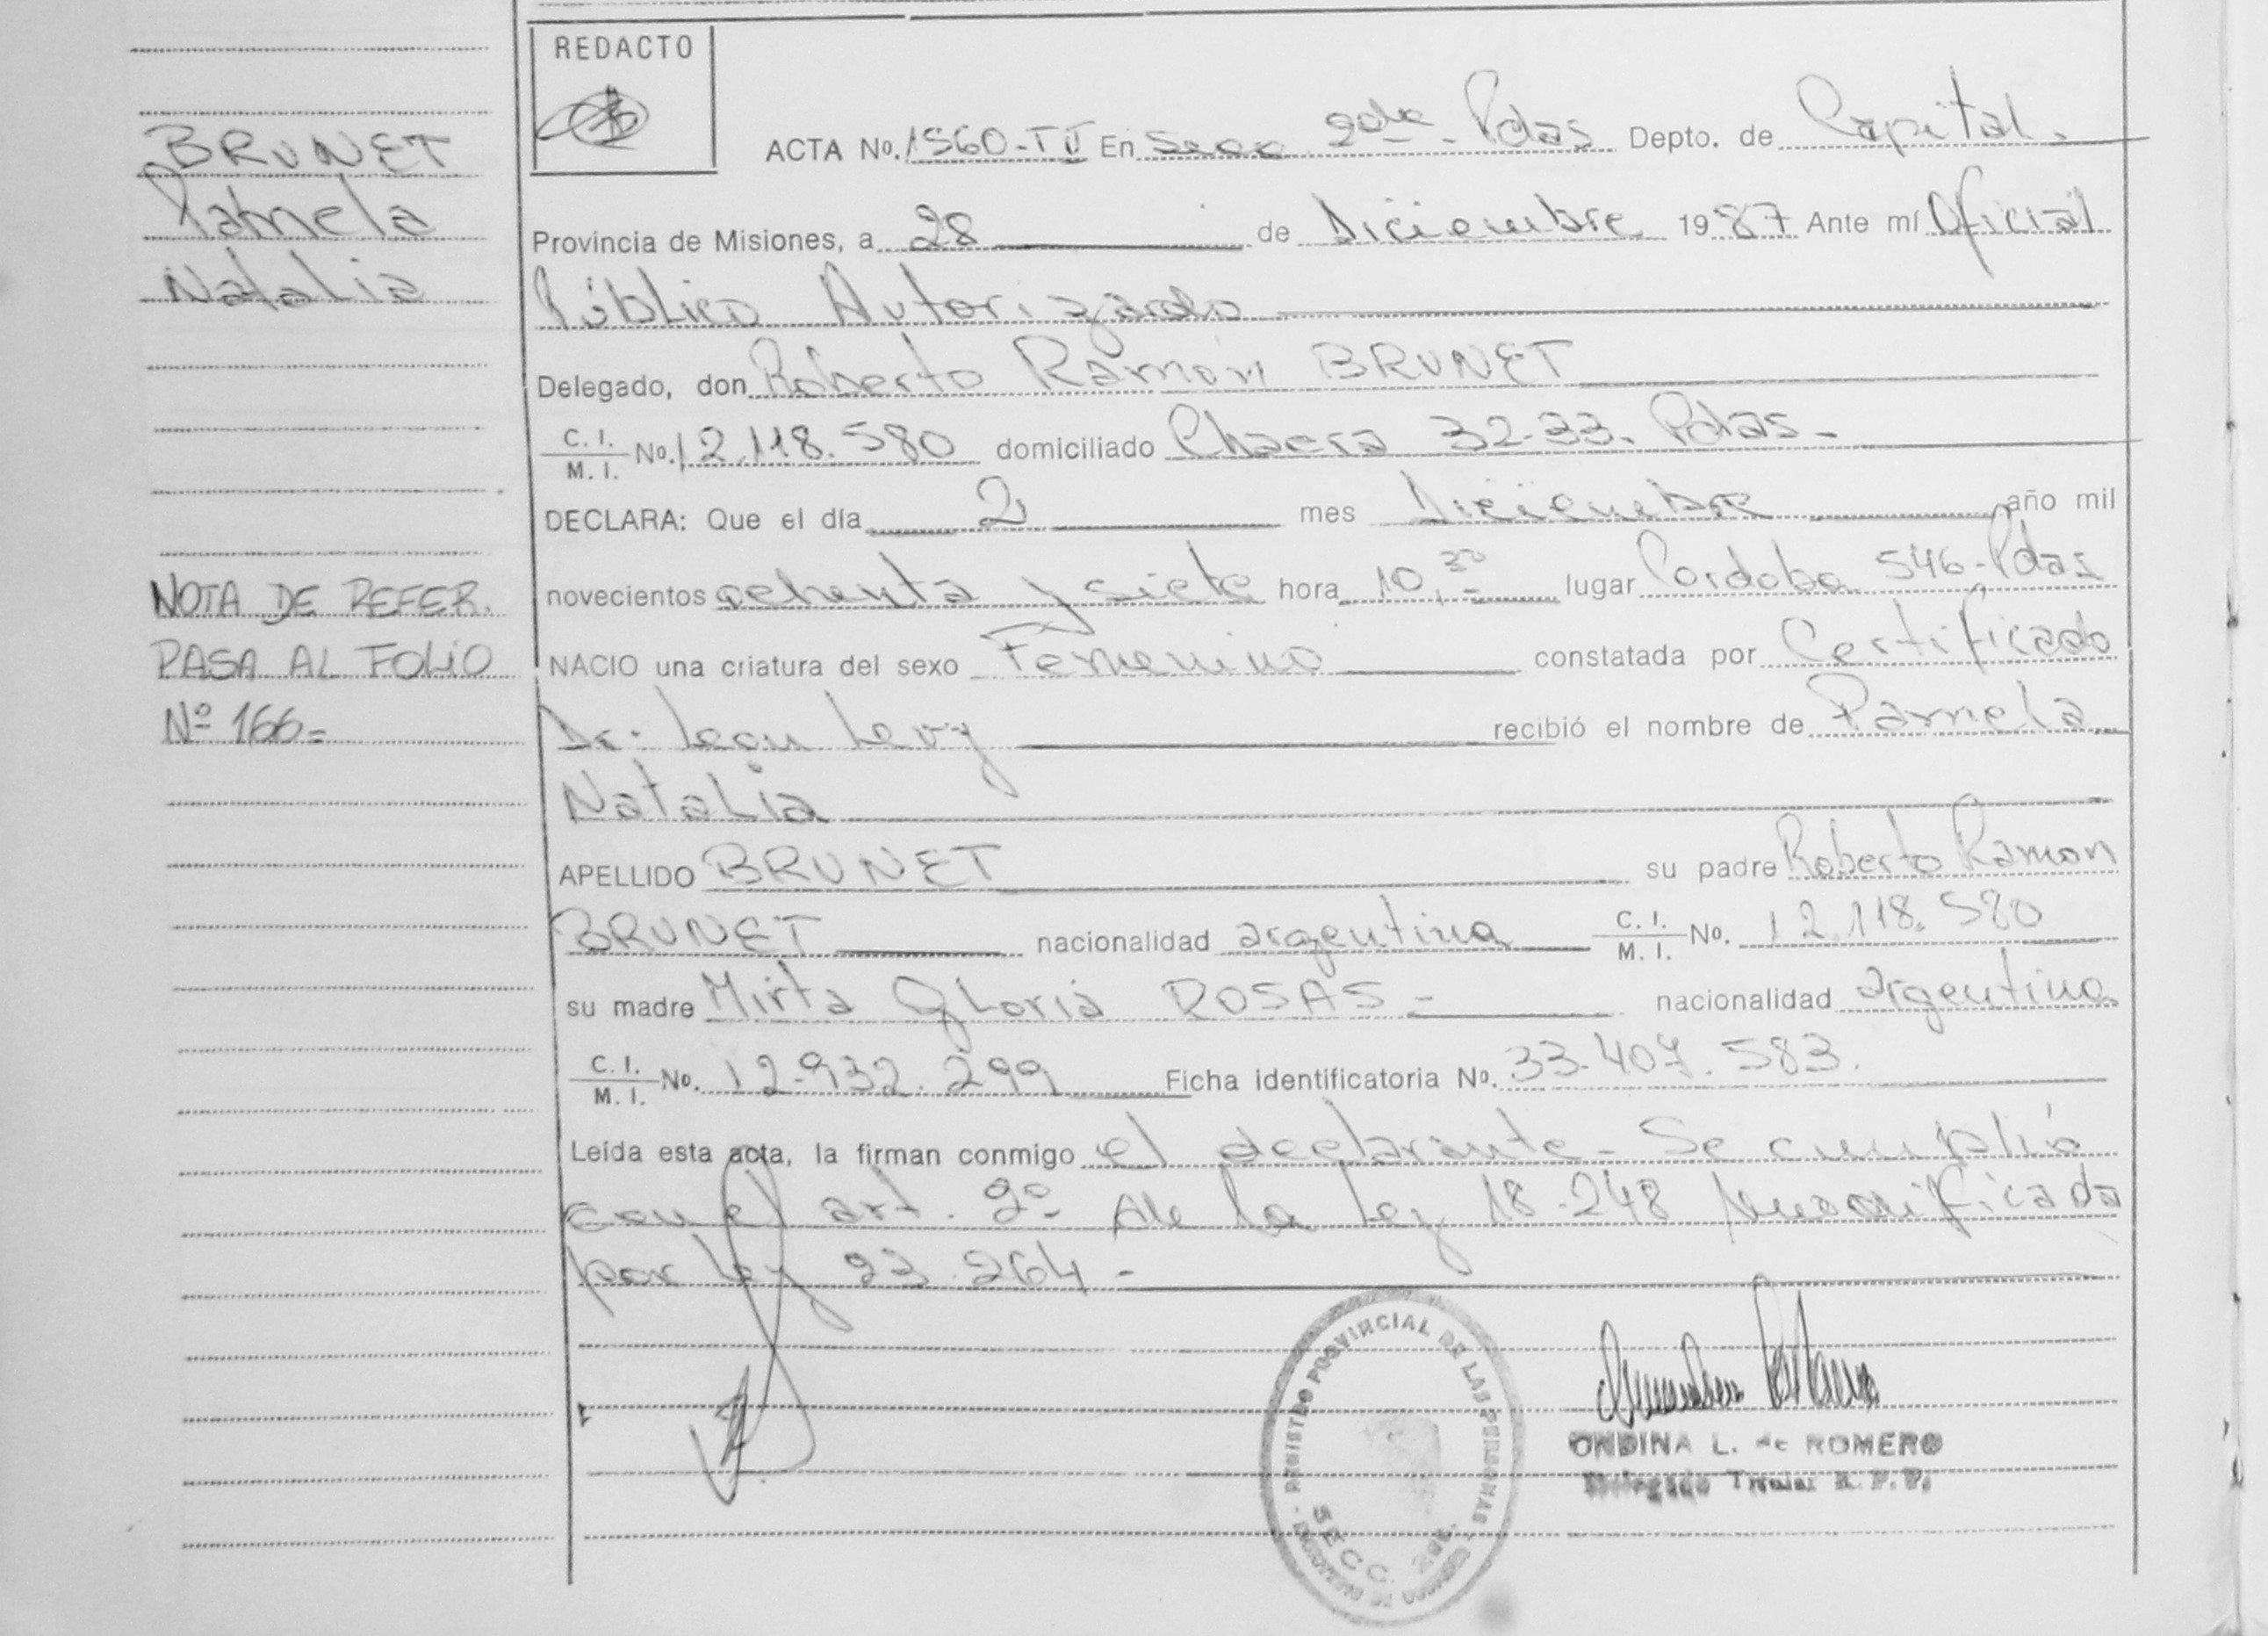 REDACTO
BRUNET
Pamela
Natalia
NOTA DE REFER.
PASA AL FOLIO
Nº 166=
ACTA Nº. 1560-TV En Secc 2da - Pdas Depto. de Capital.
Provincia de Misiones, a 28 de Diciembre 1987 Ante mí Oficial
Público Autorizado
Delegado, don Roberto Ramón BRUNET
C. I. / M. I. Nº. 12.118.580 domiciliado Chacra 32-33. Pdas -
DECLARA: Que el día 2 mes Diciembre año mil
novecientos ochenta y siete hora 10,30 lugar Cordoba 546-Pdas
NACIO una criatura del sexo Femenino constatada por Certificado
Dr. Leon Levy recibió el nombre de Pamela
Natalia
APELLIDO BRUNET su padre Roberto Ramon
BRUNET nacionalidad argentina C. I. / M. I. Nº. 12.118.580
su madre Mirta Gloria ROSAS - nacionalidad argentina
C. I. / M. I. Nº. 12.932.299 Ficha identificatoria Nº. 33.407.583.
Leída esta acta, la firman conmigo el declarante - Se cumplió
con el art. 2º de la Ley 18.248 modificada
por Ley 23.264 -
REGISTRO PROVINCIAL DE LAS PERSONAS
SECC. 2da.
ONDINA L. de ROMERO
Delegado Titular R. P. P.